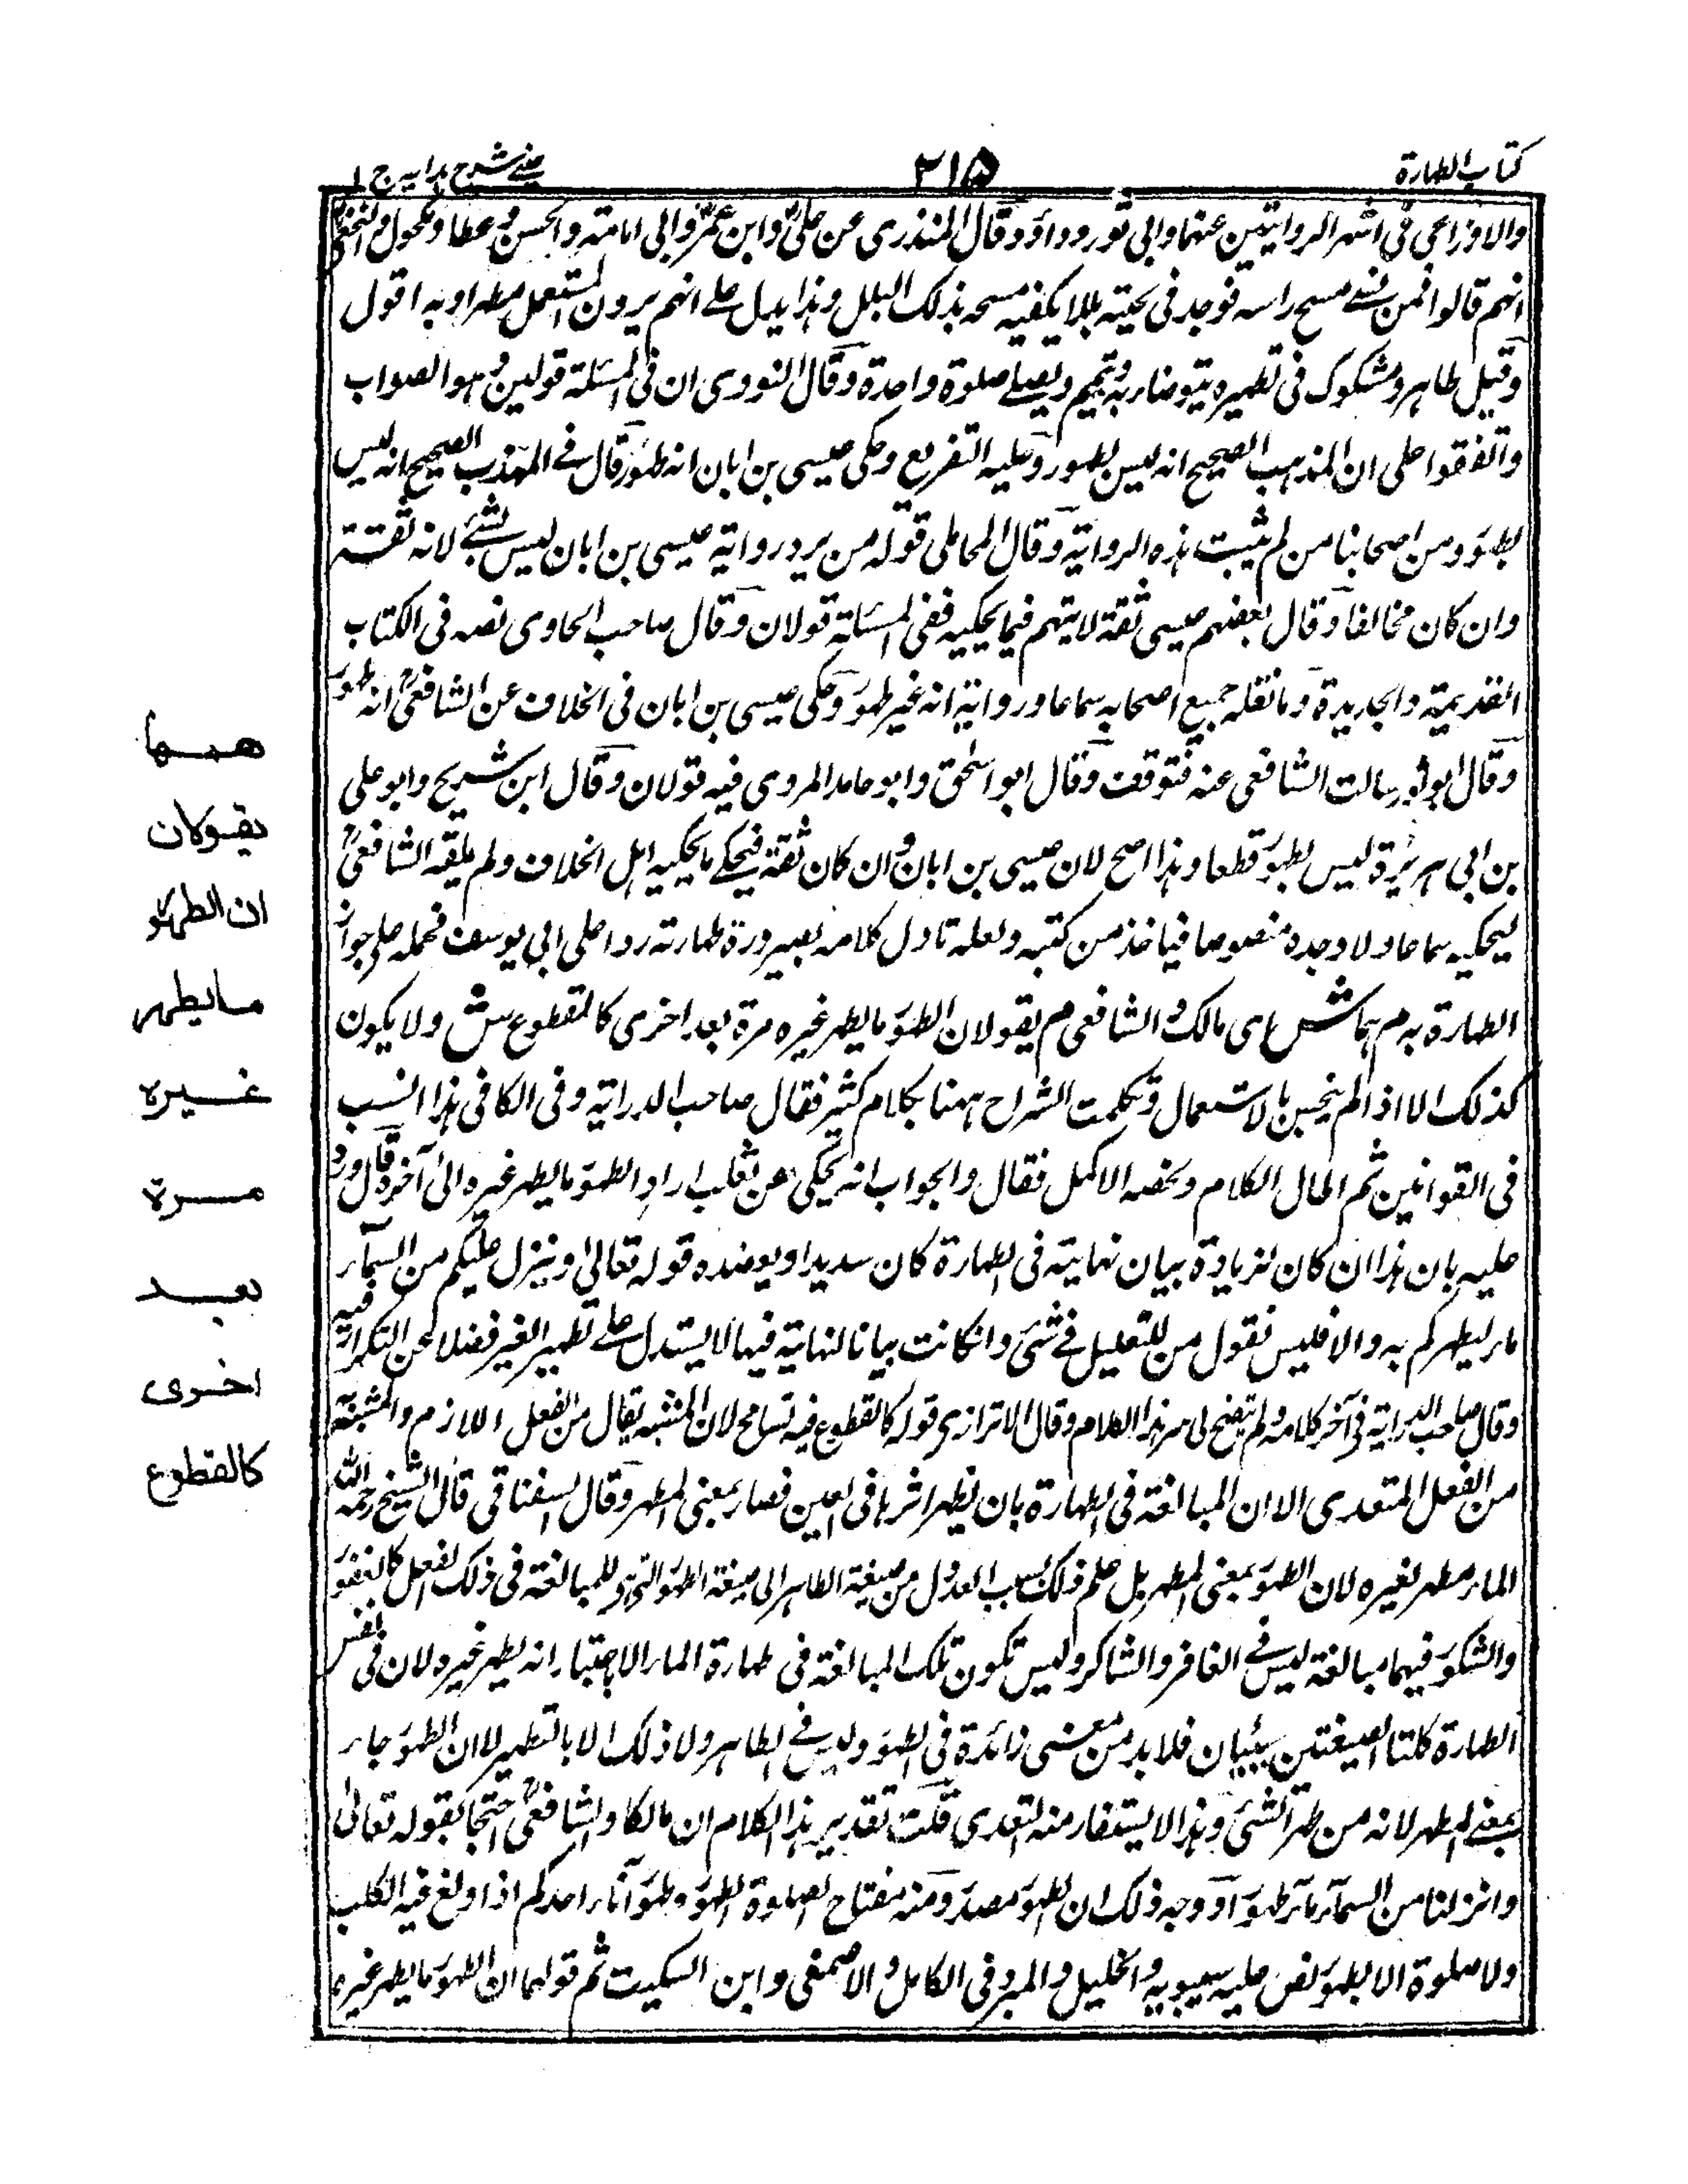 كتاب الطهارة
٢١٥
عيني شرح هدايه ج ١
والاوزاعي في اشهر الروايتين عنهما وابي ثور وداؤد وقال المنذري عن علي وابن عمر وابي امامة والحسن وعطا ومكحول والنخعي
انهم قالوا فمن نسي مسح راسه فوجد في لحيته بللا يكفيه مسحه بذلك البلل وهذا يدل على انهم يرون المستعمل مطهرا وبه اقول
وقيل طاهر ومشكوك في تطهيره يتوضأ به وتيمم ويصلي صلوة واحدة وقال النووي ان في المسئلة قولين وهو الصواب
واتفقوا على ان المذهب الصحيح انه ليس بطهور وعليه التفريع وحكى عيسى بن ابان انه طهور قال في المهذب الصحيح انه ليس
بطهور ومن اصحابنا من لم يثبت هذه الرواية وقال المحاملي قوله من يرد رواية عيسى بن ابان ليس بشئ لانه ثقة
وان كان مخالفا وقال بعضهم عيسى ثقة لا يتهم فيما يحكيه ففي المسئلة قولان وقال صاحب الحاوي نصه في الكتاب
القديمة والجديدة وما نقله جميع اصحابه سماعا ورواية انه غير طهور وحكى عيسى بن ابان في الخلاف عن الشافعي انه طهور
وقال ابو ثور سالت الشافعي عنه فتوقف وقال ابو اسحق وابو حامد المروي فيه قولان وقال ابن شريح وابو علي
بن ابي هريرة ليس بطهور قطعا وهذا اصح لان عيسى بن ابان وان كان ثقة فيحكي ما يحكيه اهل الخلاف ولم يلقه الشافعي
ليحكيه سماعا ولا وجده منصوصا فياخذ من كتبه ولعله تاول كلامه بصيرورة طهارته ردا على ابي يوسف فحمله على جواز
الطهارة به م هما ش اي مالك والشافعي م يقولان الطهور ما يطهر غيره مرة بعد اخرى كالقطوع ش ولا يكون
كذلك الا اذا لم ينجس بالاستعمال وتكلمت الشراح ههنا بكلام كثير فقال صاحب الدراية وفي الكافي هذا انسب
في القوانين ثم اطال الكلام ولخصه الاكمل فقال والجواب انه يحكى عن ثعلب اراد الطهور ما يطهر غيره الى آخره قال ورد
عليه بان هذا ان كان لزيادة بيان نهايته في الطهارة كان سديدا ويعضده قوله تعالى وينزل عليكم من السمآء
ماء ليطهركم به والا فليس فعول من التفعيل في شئ وان كانت بيانا لنهايته فيها لا يستدل على تطهير الغير فضلا عن التكرار فيه
وقال صاحب الدراية في آخر كلامه ولم يتضح لي سر هذا الكلام وقال الاترازي قوله كالقطوع فيه تسامح لان المشبه يقال من الفعل اللازم والمشبه به
من الفعل المتعدي الا ان المبالغة في الطهارة بان يظهر اثرها في العين فصار بمعنى المطهر وقال السغناقي قال الشيخ رحمه الله
الماء مطهر لغيره لان الطهور بمعنى المطهر بل علم ذلك بسبب العدول من صيغة الطاهر الى صيغة الطهور التي هو للمبالغة في ذلك الفعل كالغفور
والشكور فيهما مبالغة ليس في الغافر والشاكر وليس تكون تلك المبالغة في طهارة الماء الا باعتبار انه يطهر غيره لان في نفس
الطهارة كلتا الصيغتين سيان فلابد من معنى زائدة في الطهور وليس في الطاهر ولا ذلك الا بالتطهير لا ان الطهور جاء
بمعنى المطهر لانه من طهر الشئ وهذا لا يستفاد منه التعدي قلت تقدير هذا الكلام ان مالكا والشافعي احتجا بقوله تعالى
وانزلنا من السمآء ماء طهورا ووجه ذلك ان الطهور مصدر ومنه مفتاح الصلوة الطهور وطهور آناء احدكم اذا ولغ فيه الكلب
ولا صلوة الا بطهور نص عليه سيبويه والخليل والمبرد في الكامل والاصمعي وابن السكيت ثم قولهما ان الطهور ما يطهر غيره
هـمـا
يقولان
ان الطهور
ما يطهر
غـيره
مـرة
بعـد
اخـرى
كالقطوع